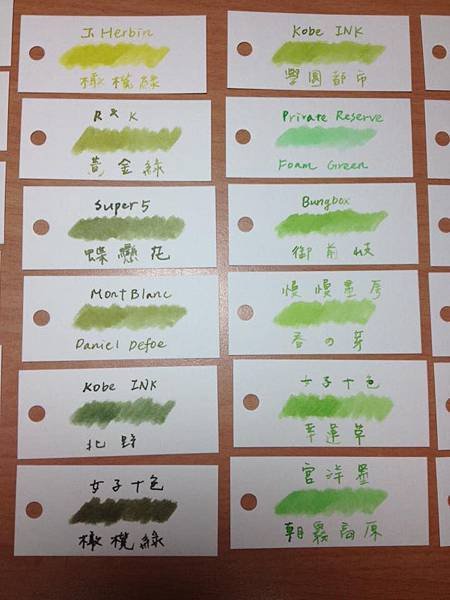 J. Herbin
橄欖綠
R & K
黃金綠
Super 5
蝶戀花
MontBlanc
Daniel Defoe
Kobe INK
北野
女子十色
橄欖綠
Kobe INK
學園都市
Private Reserve
Foam Green
Bungbox
御前崎
慢慢墨
春の芽
女子十色
幸運草
洋墨
朝霧高原